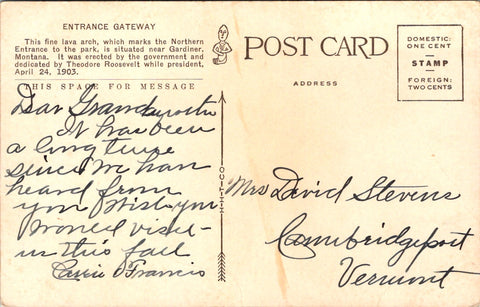 ENTRANCE GATEWAY
This fine lava arch, which marks the Northern
Entrance to the park, is situated near Gardiner,
Montana. It was erected by the government and
dedicated by Theodore Roosevelt while president,
April 24, 1903.
THIS SPACE FOR MESSAGE
Dear Grandmother
It has been
a long time
since we have
heard from
you Wish you
would visit
us this fall
Carrie & Francis
POST CARD
ADDRESS
DOMESTIC:
ONE CENT
STAMP
FOREIGN:
TWO CENTS
Mrs David Stevens
Cambridgeport
Vermont